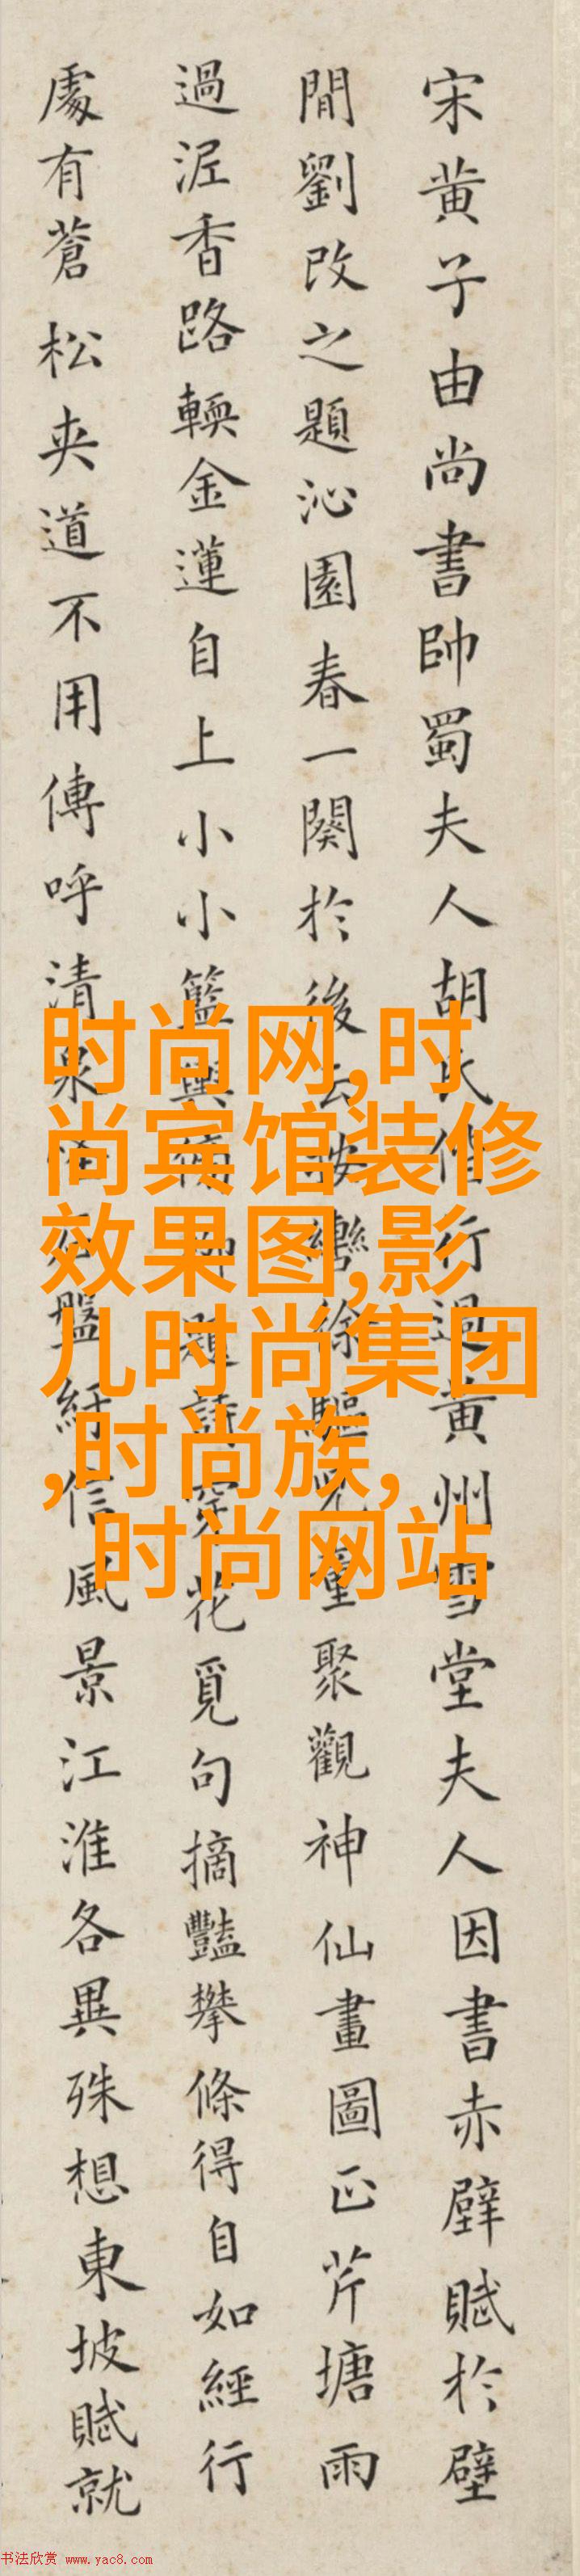 宋黄子由尚書帥蜀夫人胡氏偕行過黄州雪堂夫人因書赤壁賦於壁
間劉改之題沁園春一闋於後云按轡徐驅兒童聚觀神仙畫圖正芹塘雨
過泥香路輭金蓮自上小小籃輿傍柳題詩穿花覓句摘豔攀條得自如經行
處有蒼松夾道不用傳呼清泉怪石盤紆信風景江淮各異殊想東坡賦就
时尚网,时
尚宾馆装修
效果图,影
儿时尚集团
,时尚族,
时尚网站
书法欣赏 www.yac8.com